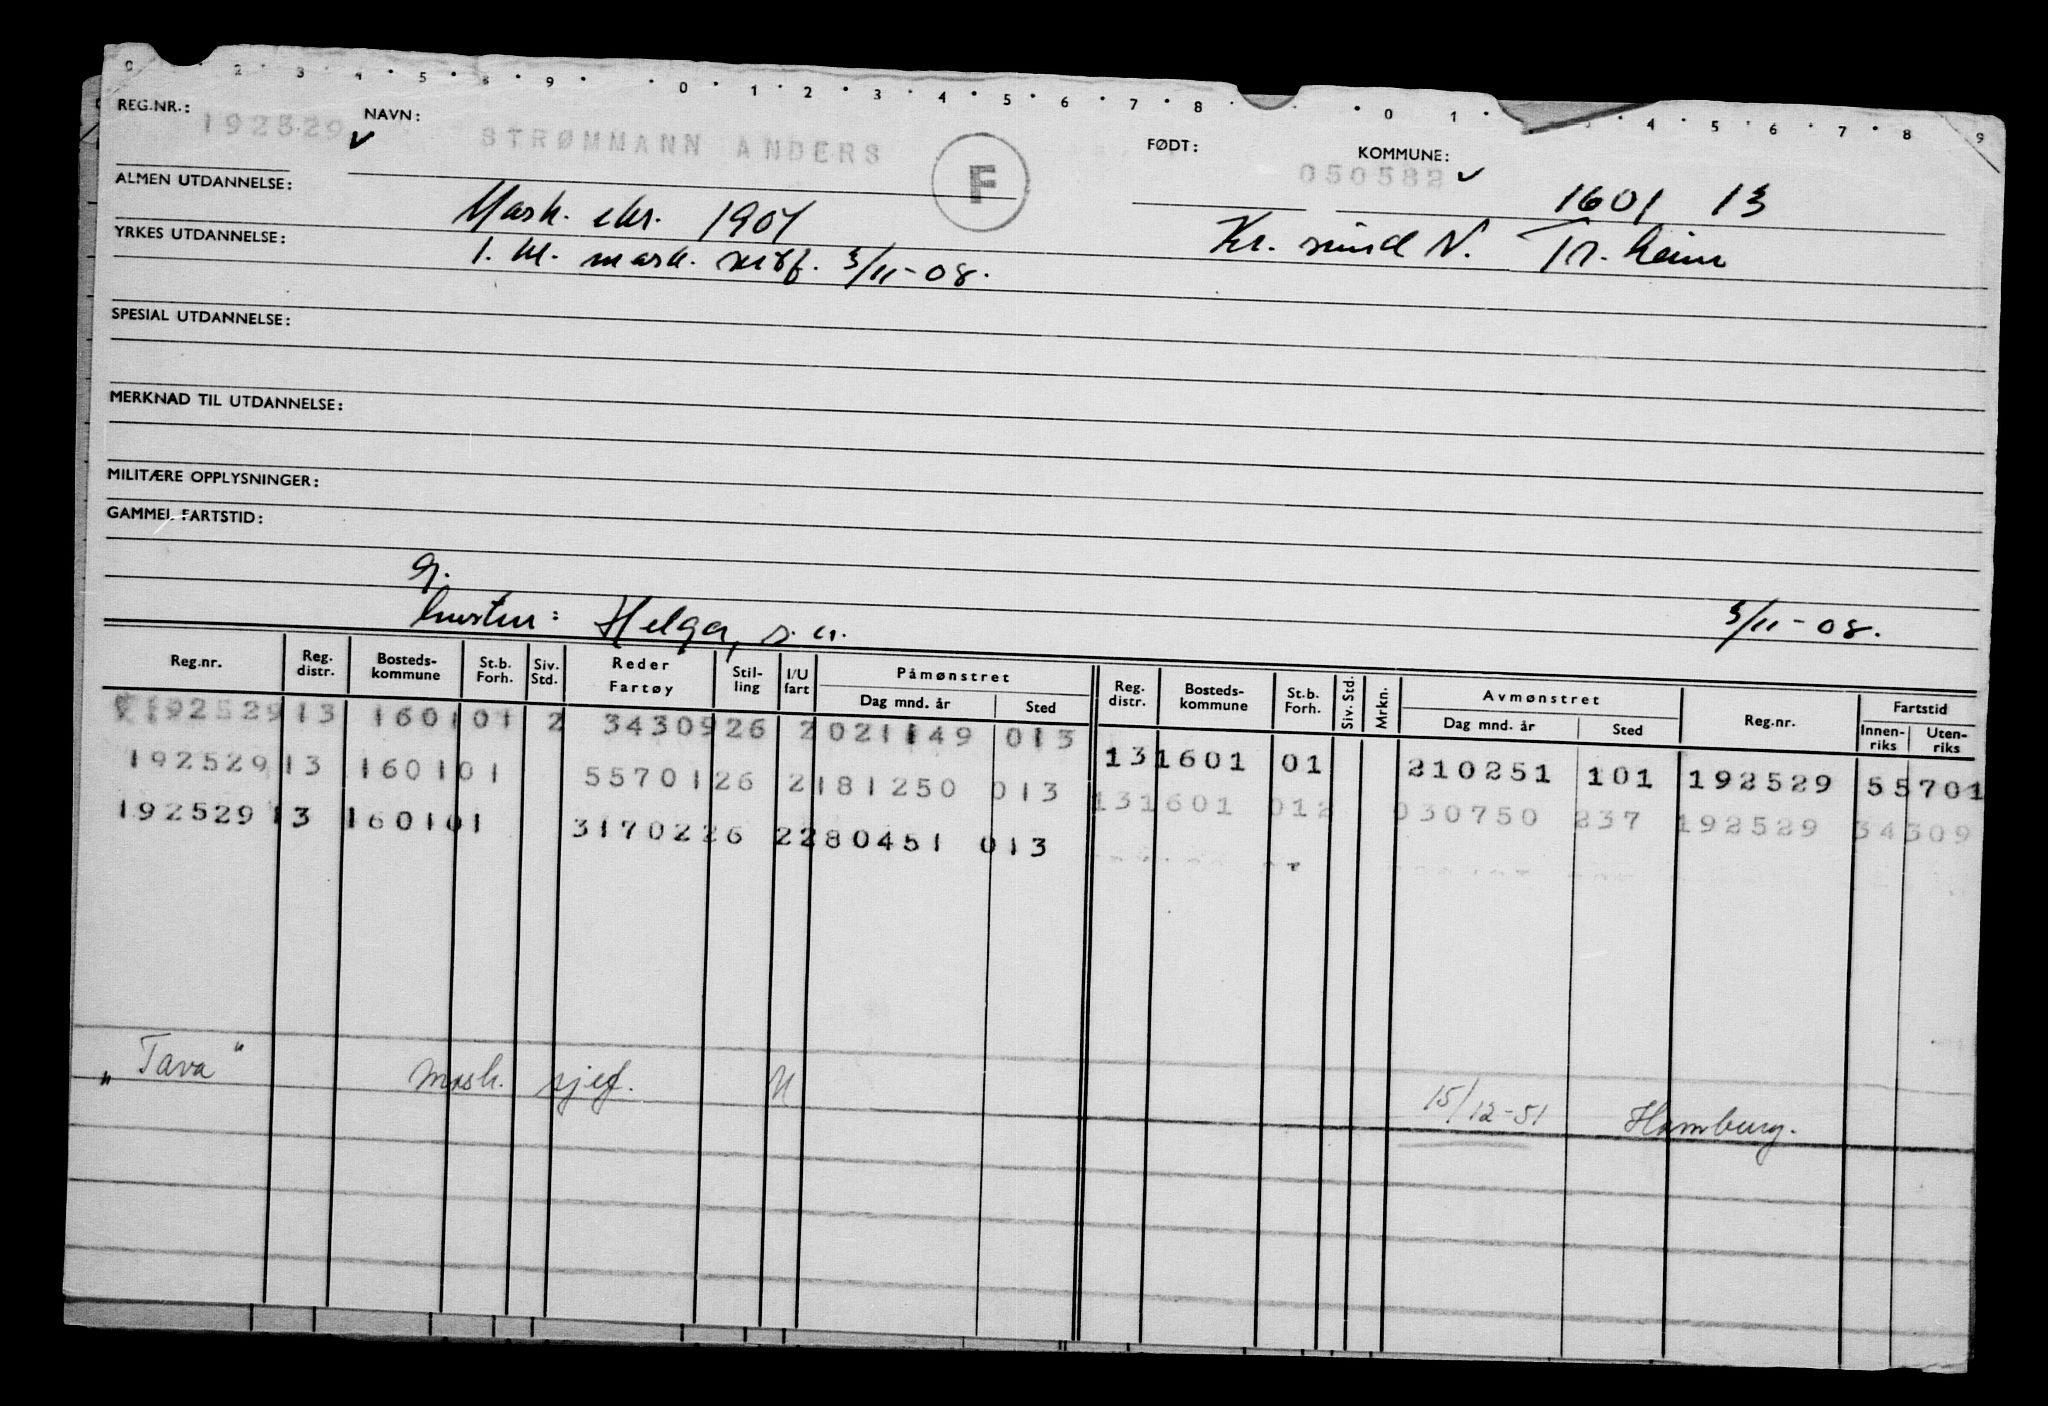 0 2 3 4 5 8 9 0 1 2 3 4 5 6 7 8 0 1 4 5 6 7 8 9
REG.NR.: 192529 NAVN: STRØMMANN ANDERS F FØDT: 050582 KOMMUNE: 1601 13
ALMEN UTDANNELSE: Mask. eks. 1901 Kr. sund N. Tr.heim
YRKES UTDANNELSE: 1. kl. mask. sert. 3/11-08.
SPESIAL UTDANNELSE:
MERKNAD TIL UTDANNELSE:
MILITÆRE OPPLYSNINGER:
GAMMEL FARTSTID:
g.
hustru: Helga, s. a. 3/11-08.
Reg.nr. Reg. distr. Bosteds-kommune St.b. Forh. Siv. Std. Reder Fartøy Stil-ling I/U fart Påmønstret Dag mnd. år Sted Reg. distr. Bosteds-kommune St.b. Forh. Siv. Std. Mrkn. Avmønstret Dag mnd. år Sted Reg.nr. Fartstid Innen-riks Uten-riks
192529 13 1601 01 2 34309 26 2 021149 013
192529 13 1601 01 55701 26 2 181250 013 13 1601 01 210251 101 192529 55701
192529 13 1601 01 31702 26 2 280451 013 13 1601 012 030750 237 192529 34309
"Tava" mask. sjef. U 15/12-51 Hamburg.